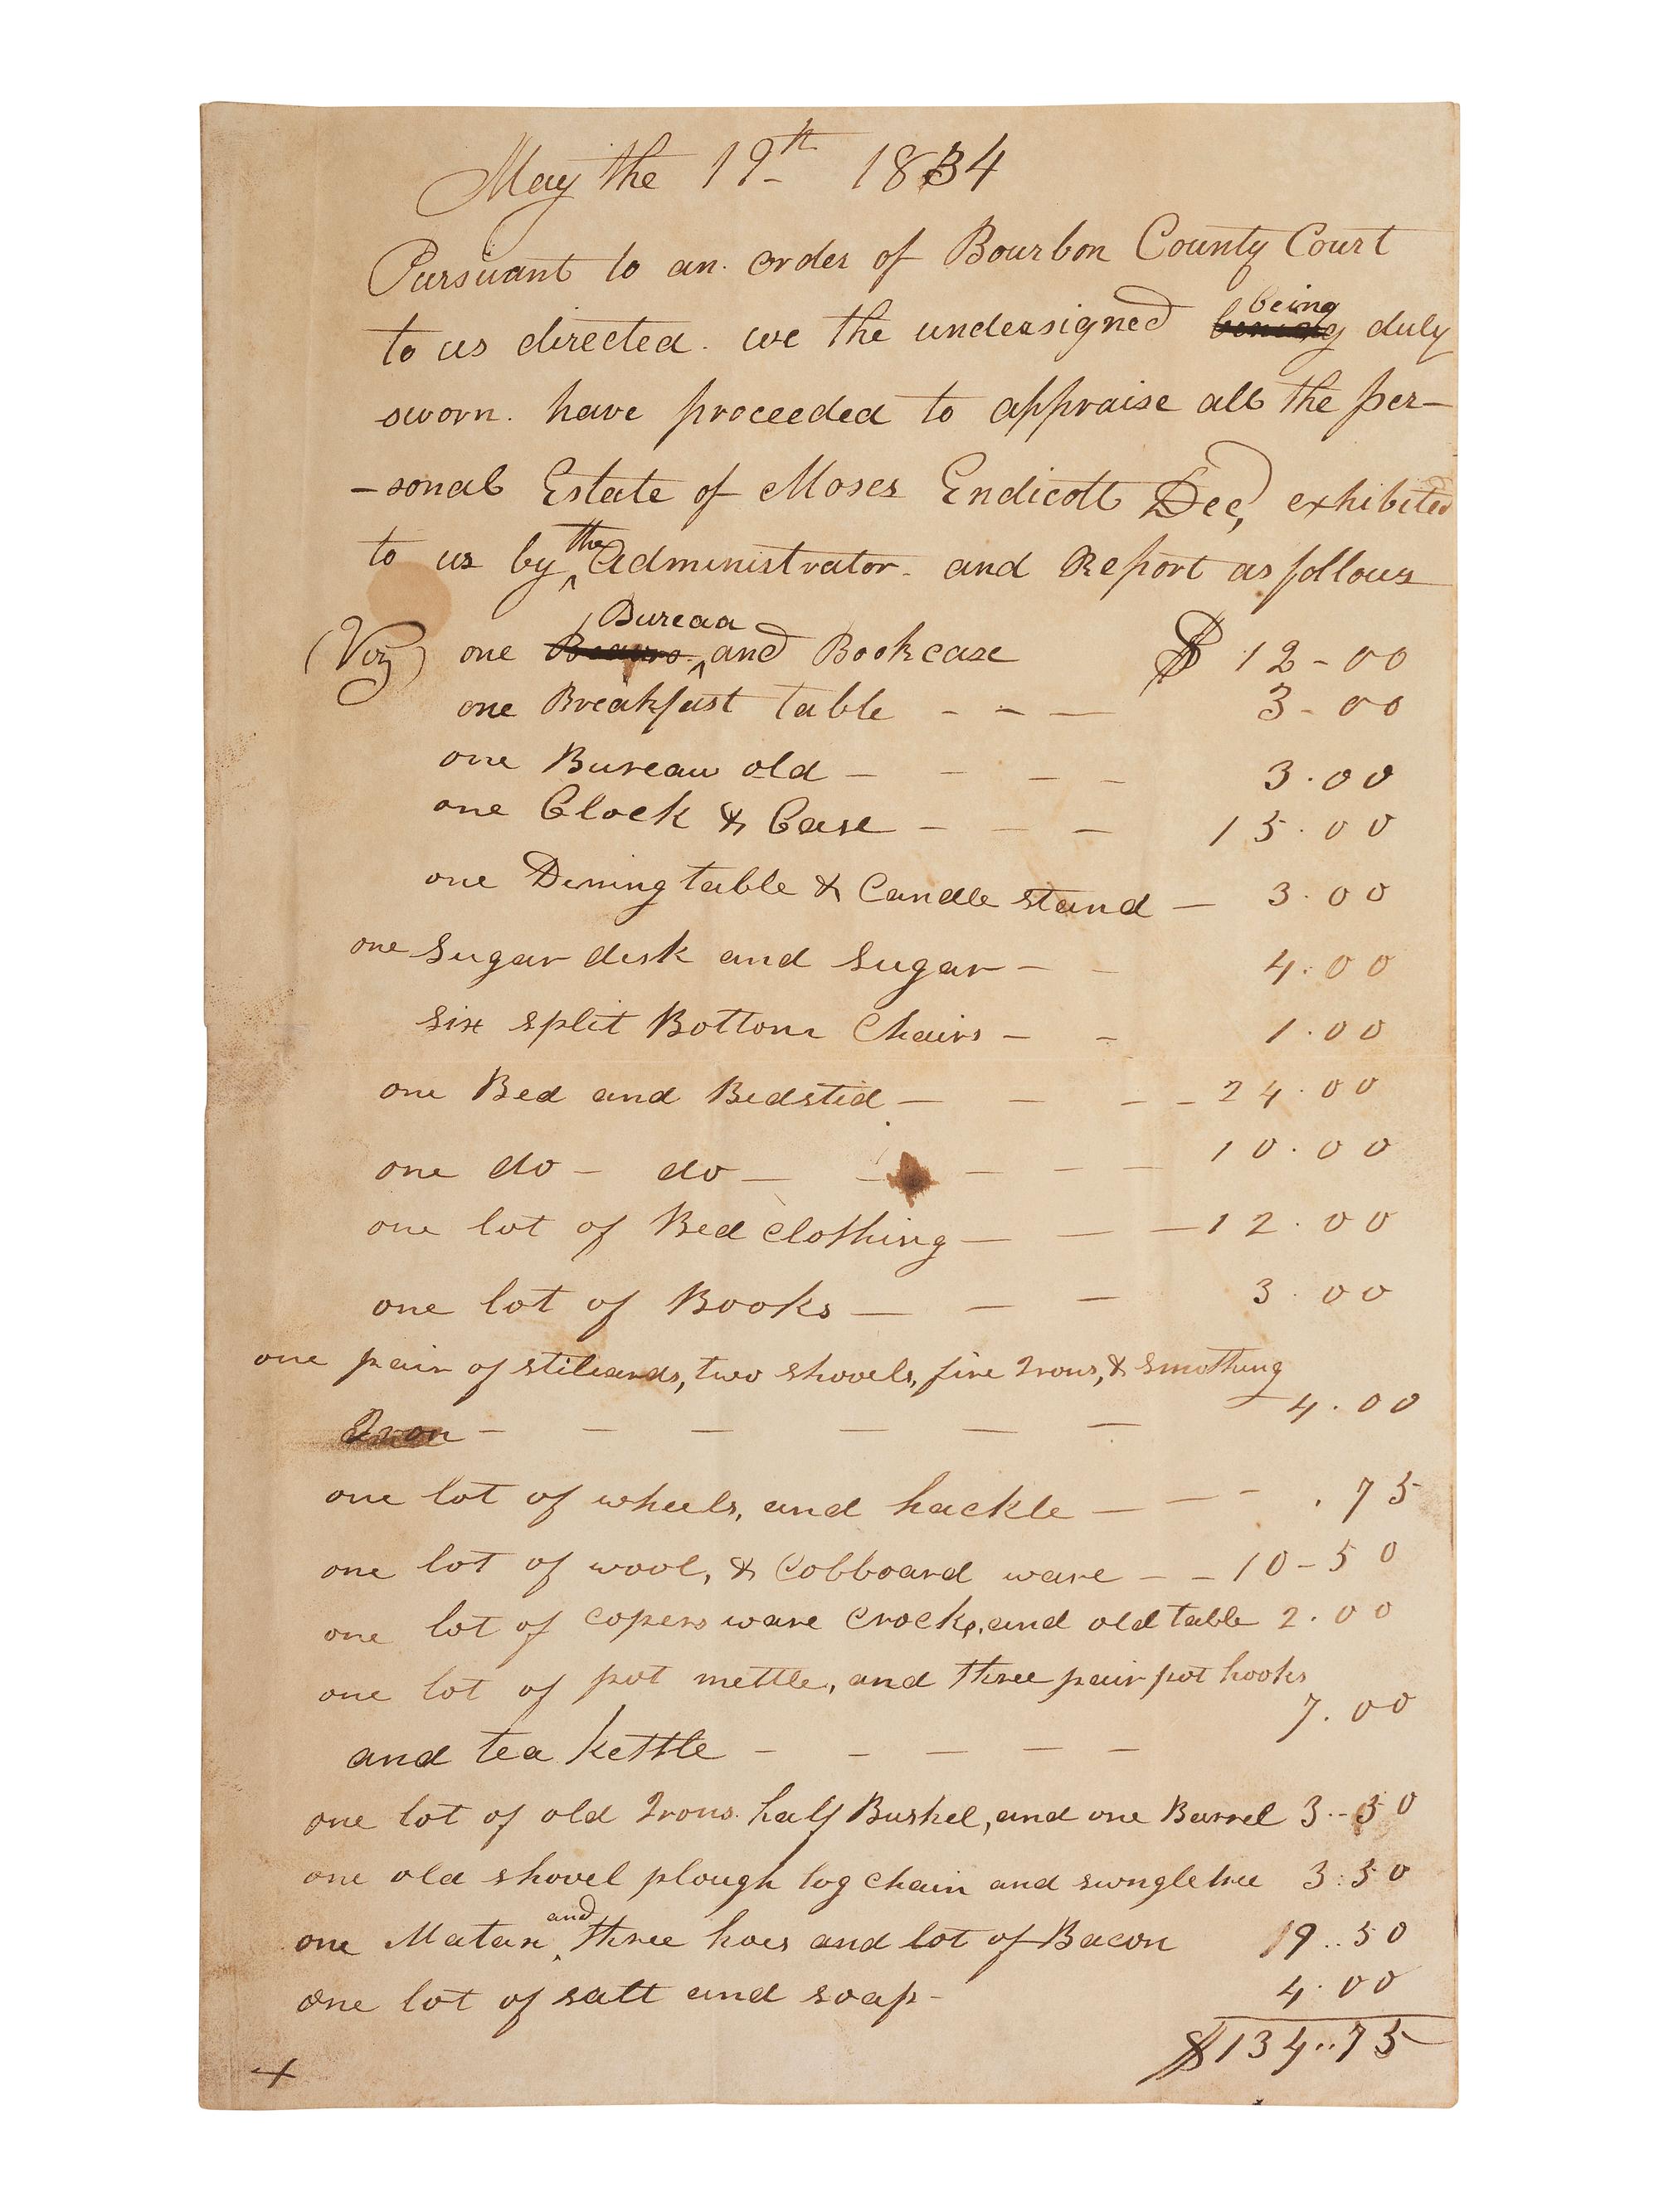 May the 19th 1834
Pursuant to an order of Bourbon County Court
to us directed. we the undersigned being duly
sworn. have proceeded to appraise all the per-
-sonal Estate of Moses Endicott Decd, exhibited
to us by the administrator. and Report as follows
(Viz) one Bureau and Bookcase $ 12-00
one Breakfust table - - - 3-00
one Bureau old - - - - 3.00
one Clock & Case - - - 15.00
one Dining table & Candle stand - 3.00
one Sugar desk and Sugar - - 4.00
six split Bottom Chairs - - 1.00
one Bed and Bedstid - - - - 24.00
one do - do - - - - - 10.00
one lot of Bed clothing - - - 12.00
one lot of Books - - - 3.00
one pair of stileards, two shovels, fire Irons, & Smothing
Iron - - - - - - - 4.00
one lot of wheels, and hackle - - - .75
one lot of wool, & Cobboard ware - - 10-50
one lot of copers ware Crocks, and old table 2.00
one lot of pot mettle, and three pair pot hooks
and tea kettle - - - - - 7.00
one lot of old Irons. half Bushel, and one Barrel 3..50
one old shovel plough log chain and swngletree 3:50
one Matax, and three hoes and lot of Bacon 19..50
one lot of salt and soap - 4.00
$134..75
+